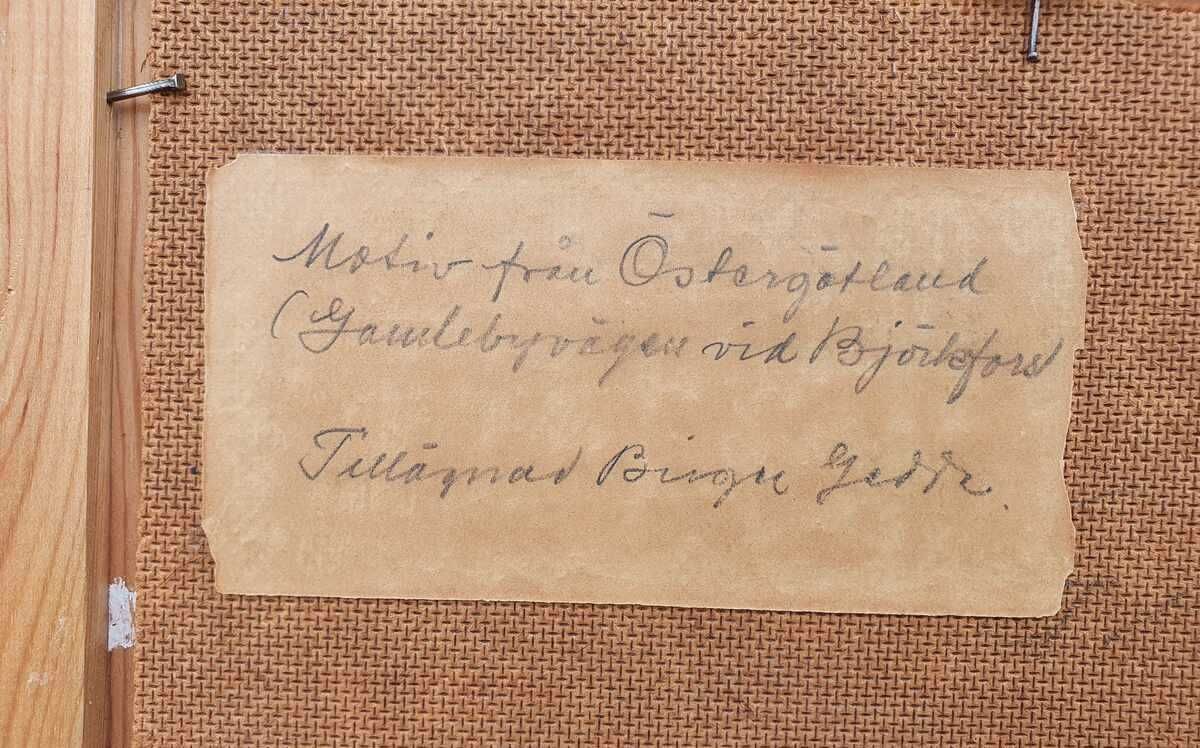 Motiv från Östergötland
(Gamlebyvägen vid Björkfors
Tillägnad Birger Gedda.